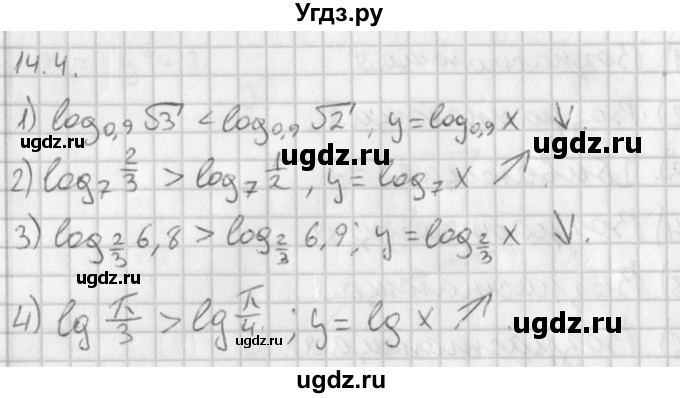 Угдз.ру
14.4.
1) log₀,₉ √3 < log₀,₉ √2; y = log₀,₉ x ↓.
ugdz.ru ugdz.ru ugdz.ru
2) log₇ 2/3 > log₇ 1/2, y = log₇ x ↗
3) log_2/3 6,8 > log_2/3 6,9; y = log_2/3 x ↓.
ugdz.ru
4) lg π/3 > lg π/4; y = lg x ↗
ugdz.ru ugdz.ru
ugdz.ru
ugdz.ru